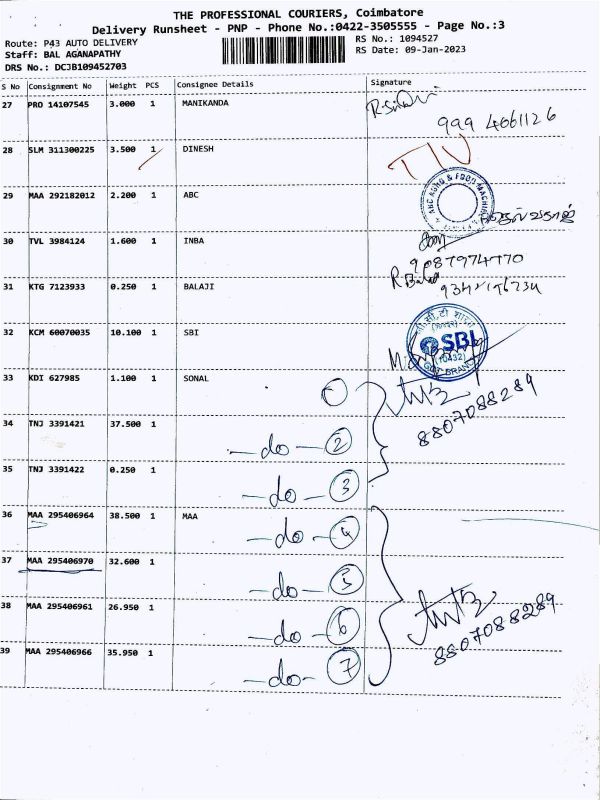 THE PROFESSIONAL COURIERS, Coimbatore
Delivery Runsheet - PNP - Phone No.:0422-3505555 - Page No.:3
Route: P43 AUTO DELIVERY
RS No.: 1094527
Staff: BAL AGANAPATHY
RS Date: 09-Jan-2023
DRS No.: DCJB109452703
S No Consignment No Weight PCS Consignee Details Signature
27 PRO 14107545 3.000 1 MANIKANDA
999 4061126
28 SLM 311300225 3.500 1 DINESH
29 MAA 292182012 2.200 1 ABC
30 TVL 3984124 1.600 1 INBA
9087974770
31 KTG 7123933 0.250 1 BALAJI
32 KCM 60070035 10.100 1 SBI
SBI
(10432)
33 KDI 627985 1.100 1 SONAL
8807088289
34 TNJ 3391421 37.500 1
-do- 2
35 TNJ 3391422 0.250 1
-do- 3
36 MAA 295406964 38.500 1 MAA
-do- 4
37 MAA 295406970 32.600 1
-do- 5
38 MAA 295406961 26.950 1
-do- 6
8807088289
39 MAA 295406966 35.950 1
-do- 7